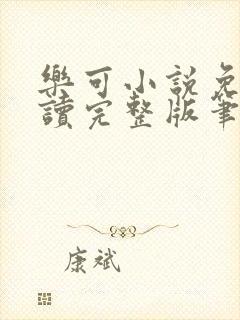 樂可小說免
讀完整版筆
康斌